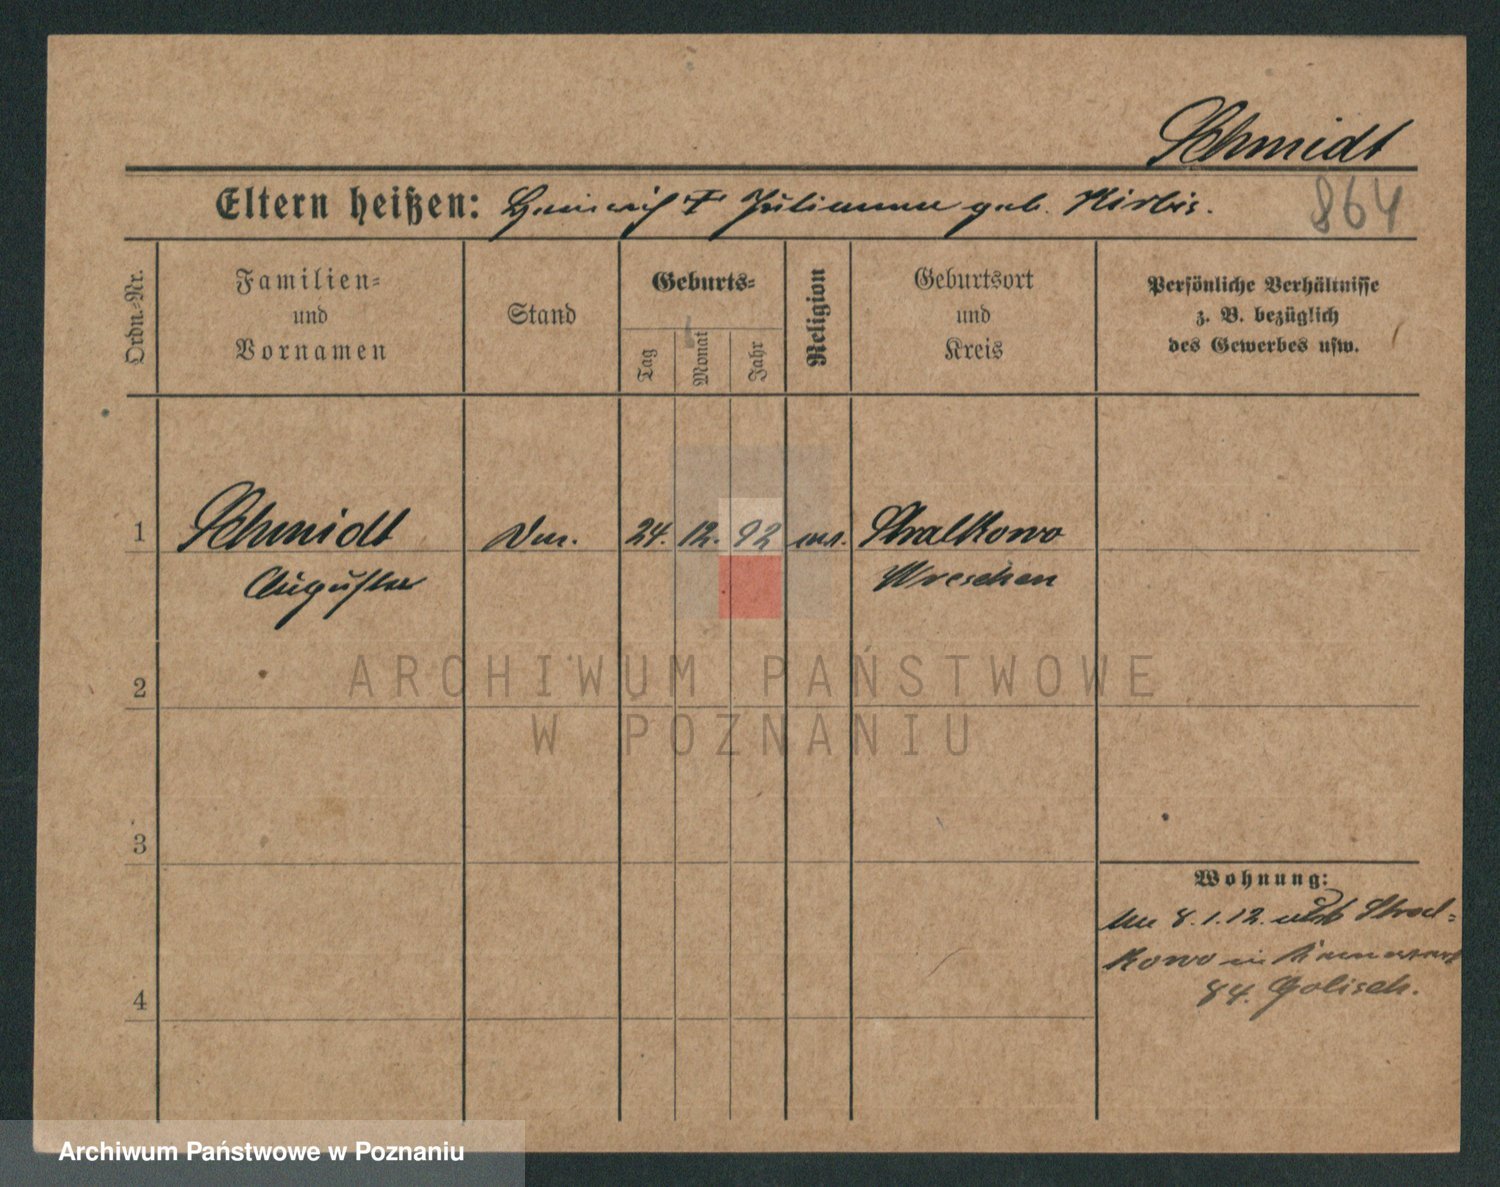 Schmidt
Eltern heißen: Heinrich & Julianna geb. Kirbis.
864
Ordn.-Nr.
Familien-
und
Vornamen
Stand
Geburts-
Tag
Monat
Jahr
Religion
Geburtsort
und
Kreis
Persönliche Verhältnisse
z. B. bezüglich
des Gewerbes usw.
1
Schmidt
24.
12.
92
Stralkowo
Auguste
Wreschen
2
ARCHIWUM PAŃSTWOWE
W POZNANIU
3
Wohnung:
Am 8.1.12. Stral-
kowo in
84. Golisch.
4
Archiwum Państwowe w Poznaniu